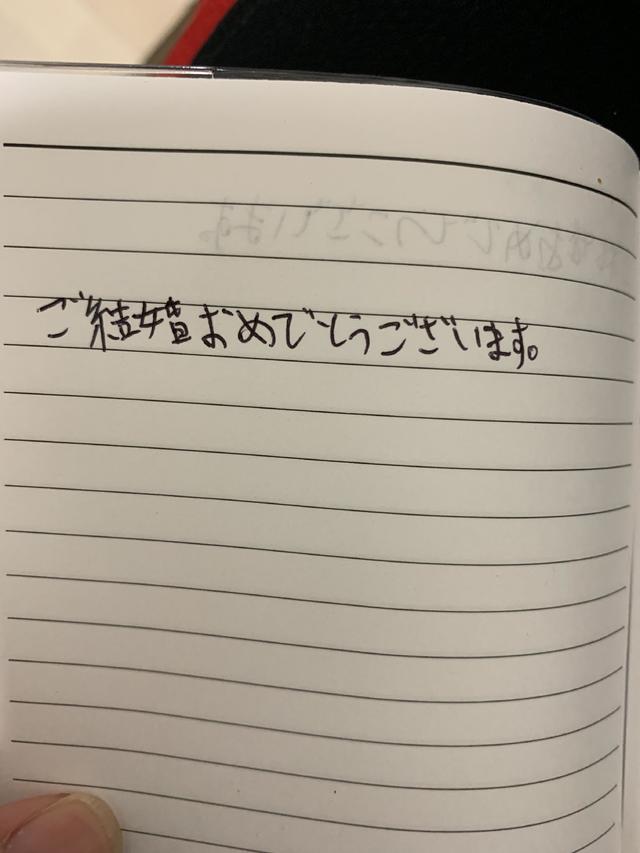 ご結婚おめでとうございます。